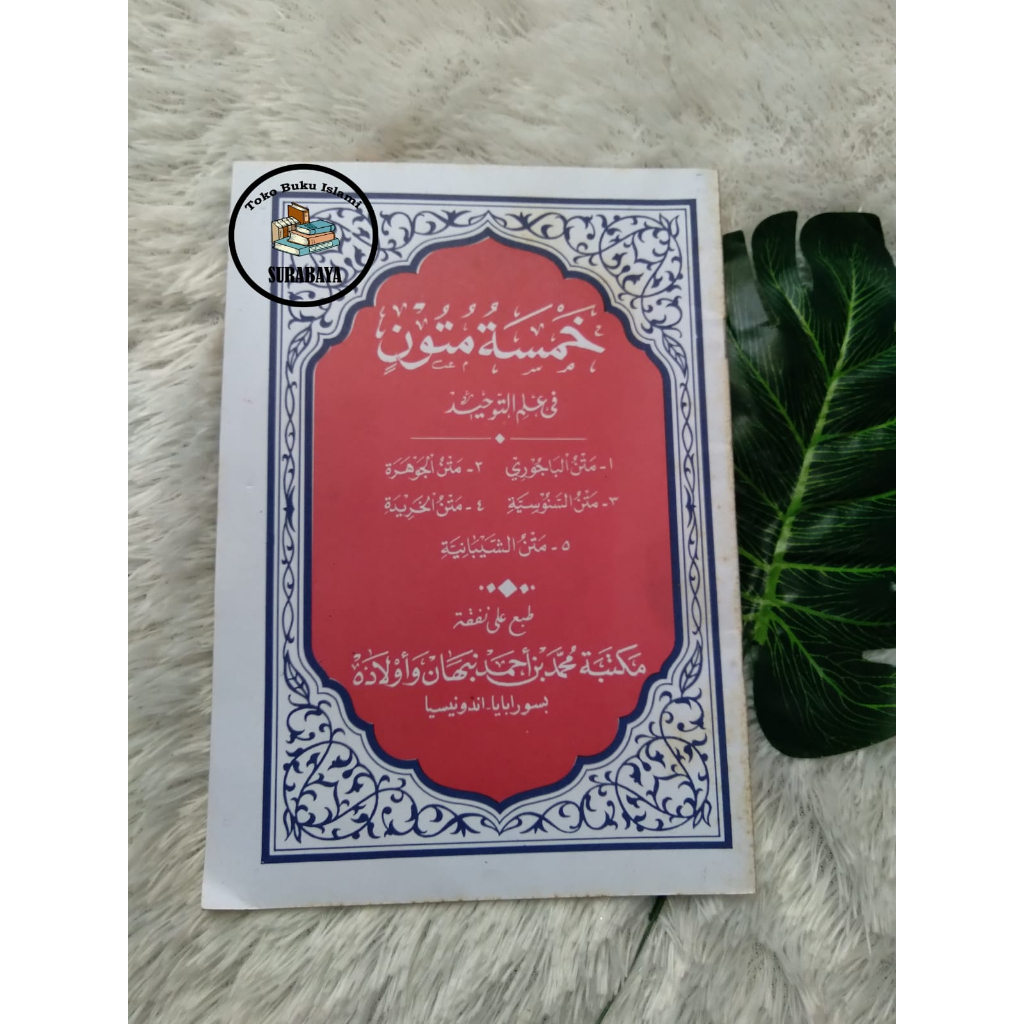 Toko Buku Islami
SURABAYA
خَمْسَةُ مُتُوْنٍ
فى علم التوحيد
١ - مَتْنُ الْبَاجُوْرِي ٢ - مَتْنُ الْجَوْهَرَة
٣ - مَتْنُ السَّنُوْسِيَّة ٤ - مَتْنُ الْخَرِيْدَة
٥ - مَتْنُ الشَّيْبَانِيَّة
طبع على نفقة
مَكتبَة مُحمَّد بْن أحمَد نبهَان وَأوْلَادَهْ
بسورابايا - اندونيسيا